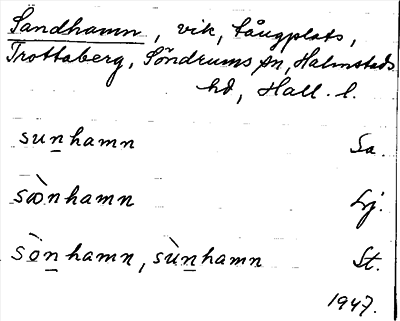 Sandhamn, vik, tångplats,
Trottaberg, Söndrums sn, Halmstads
hd, Hall. l.
sunhamn Sa.
sòònhamn Lj.
sònhamn, sùnhamn St.
1947.